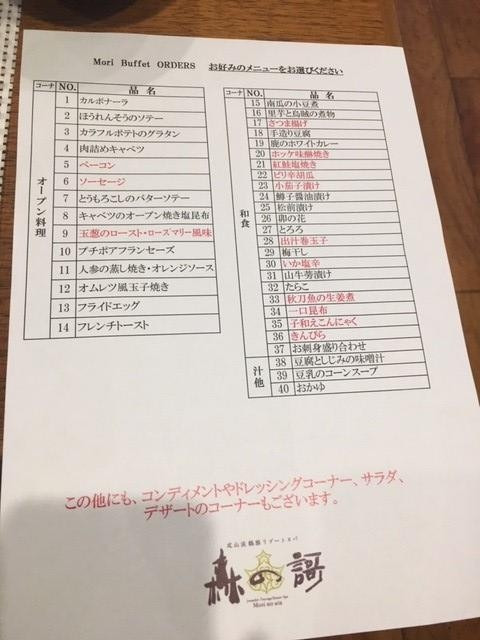 Mori Buffet ORDERS お好みのメニューをお選びください
コーナ NO. 品 名
オーブン料理
1 カルボナーラ
2 ほうれんそうのソテー
3 カラフルポテトのグラタン
4 肉詰めキャベツ
5 ベーコン
6 ソーセージ
7 とうもろこしのバターソテー
8 キャベツのオーブン焼き塩昆布
9 玉葱のロースト・ローズマリー風味
10 プチポアフランセーズ
11 人参の蒸し焼き・オレンジソース
12 オムレツ風玉子焼き
13 フライドエッグ
14 フレンチトースト
コーナ NO. 品 名
和食
15 南瓜の小豆煮
16 里芋と烏賊の煮物
17 さつま揚げ
18 手造り豆腐
19 鹿のホワイトカレー
20 ホッケ味醂焼き
21 紅鮭塩焼き
22 ピリ辛胡瓜
23 小茄子漬け
24 鰊子醤油漬け
25 松前漬け
26 卯の花
27 とろろ
28 出汁巻玉子
29 梅干し
30 いか塩辛
31 山牛蒡漬け
32 たらこ
33 秋刀魚の生姜煮
34 一口昆布
35 子和えこんにゃく
36 きんぴら
37 お刺身盛り合わせ
汁他
38 豆腐としじみの味噌汁
39 豆乳のコーンスープ
40 おかゆ
この他にも、コンディメントやドレッシングコーナー、サラダ、
デザートのコーナーもございます。
森の謌
Mori no uta